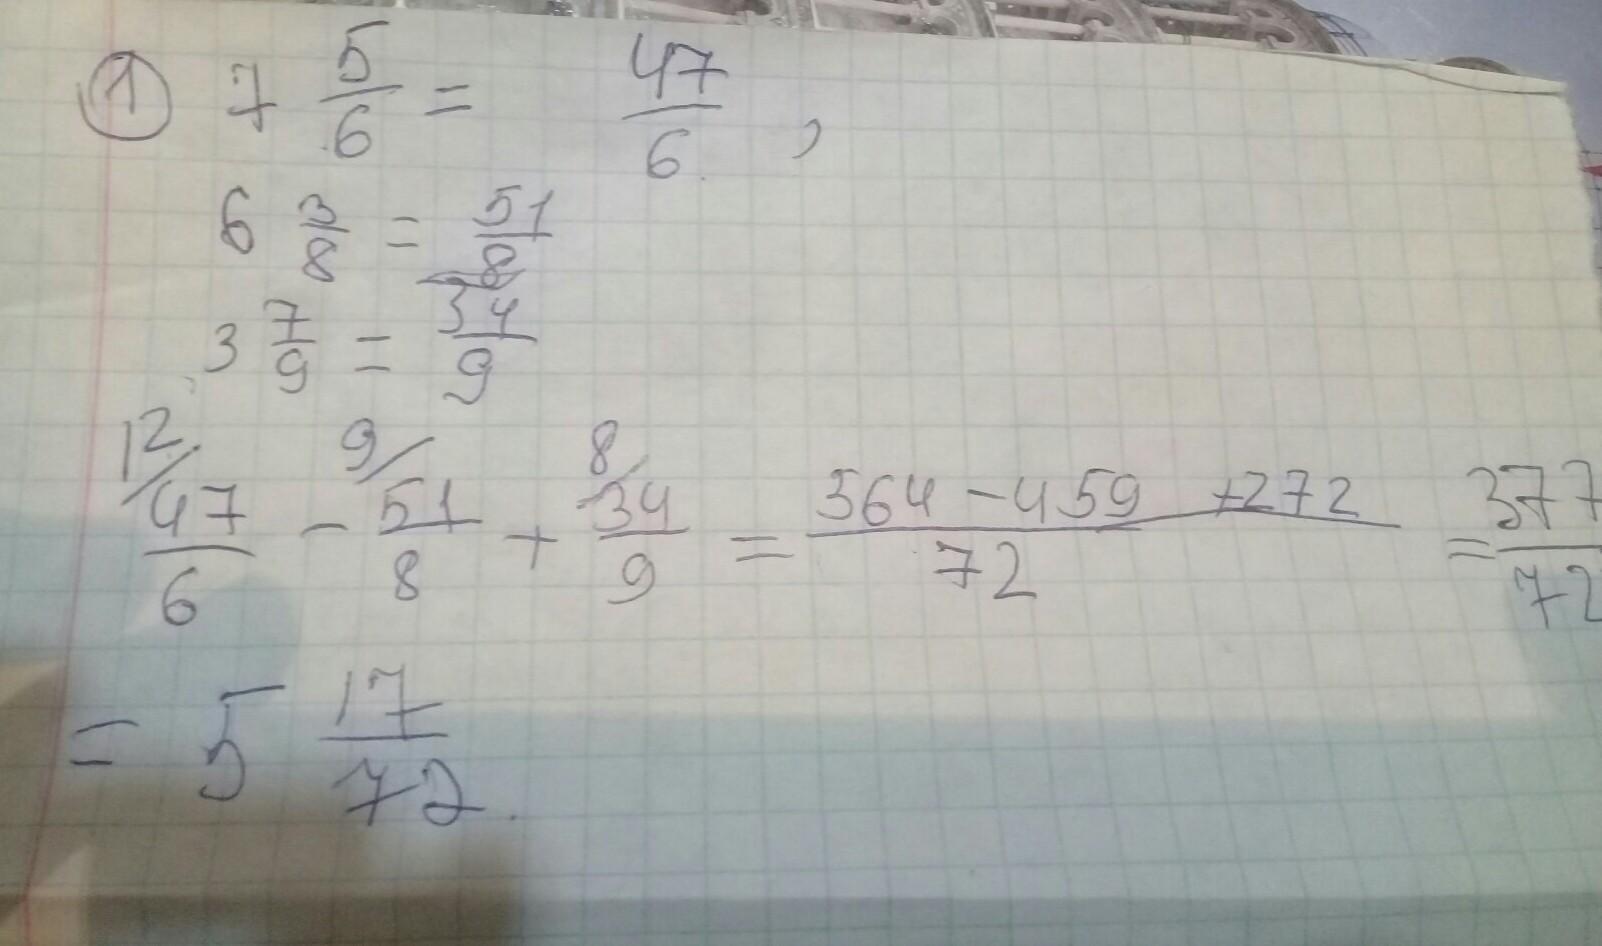 ① 7 5/6 = 47/6,
6 3/8 = 51/8
3 7/9 = 34/9
12/ 47/6 - 9/ 51/8 + 8/ 34/9 = 564 - 459 + 272 / 72 = 377/72
= 5 17/72.